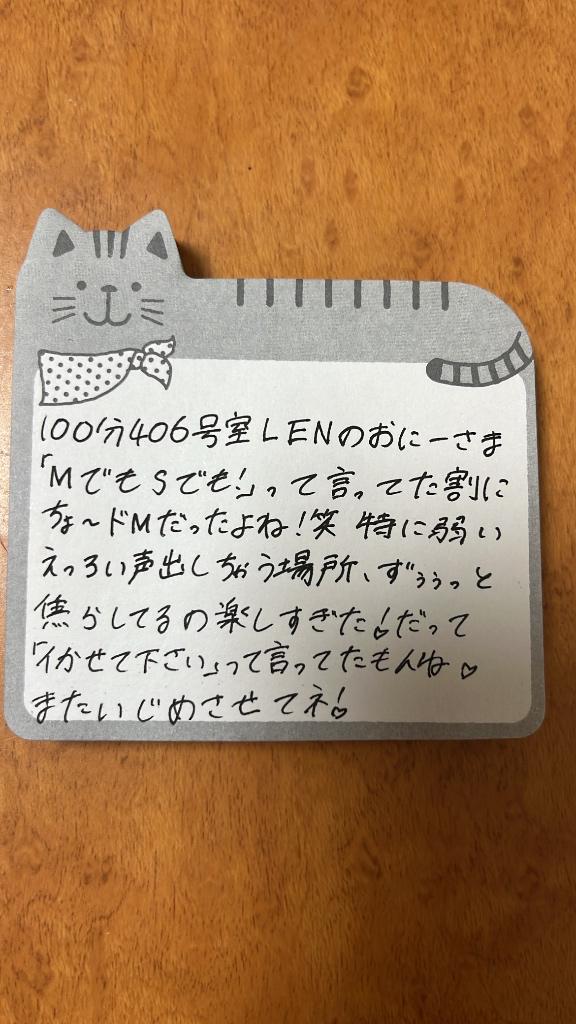 100分406号室LENのおにーさま
「MでもSでも!」って言ってた割に
ちょ〜ドMだったよね!笑 特に弱い
えっろい声出しちゃう場所、ずぅぅっと
焦らしてるの楽しすぎた!だって
「イかせて下さい」って言ってたもんね♡
またいじめさせてネ!